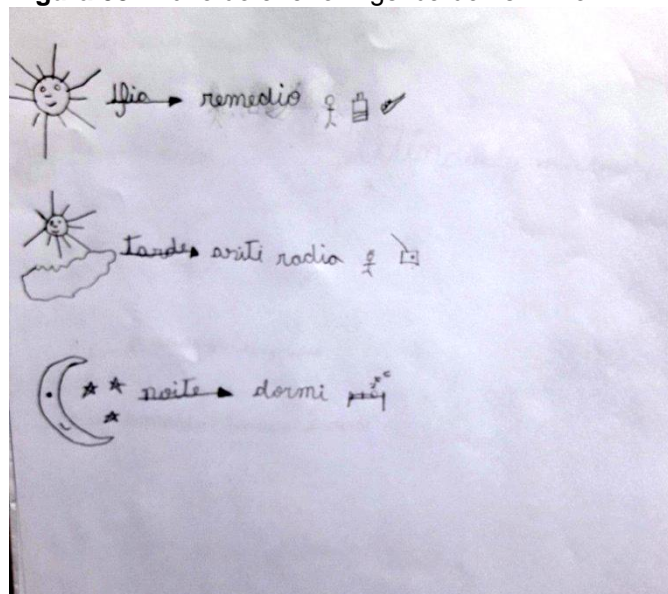 dia remedio
tarde radio
noite dormi